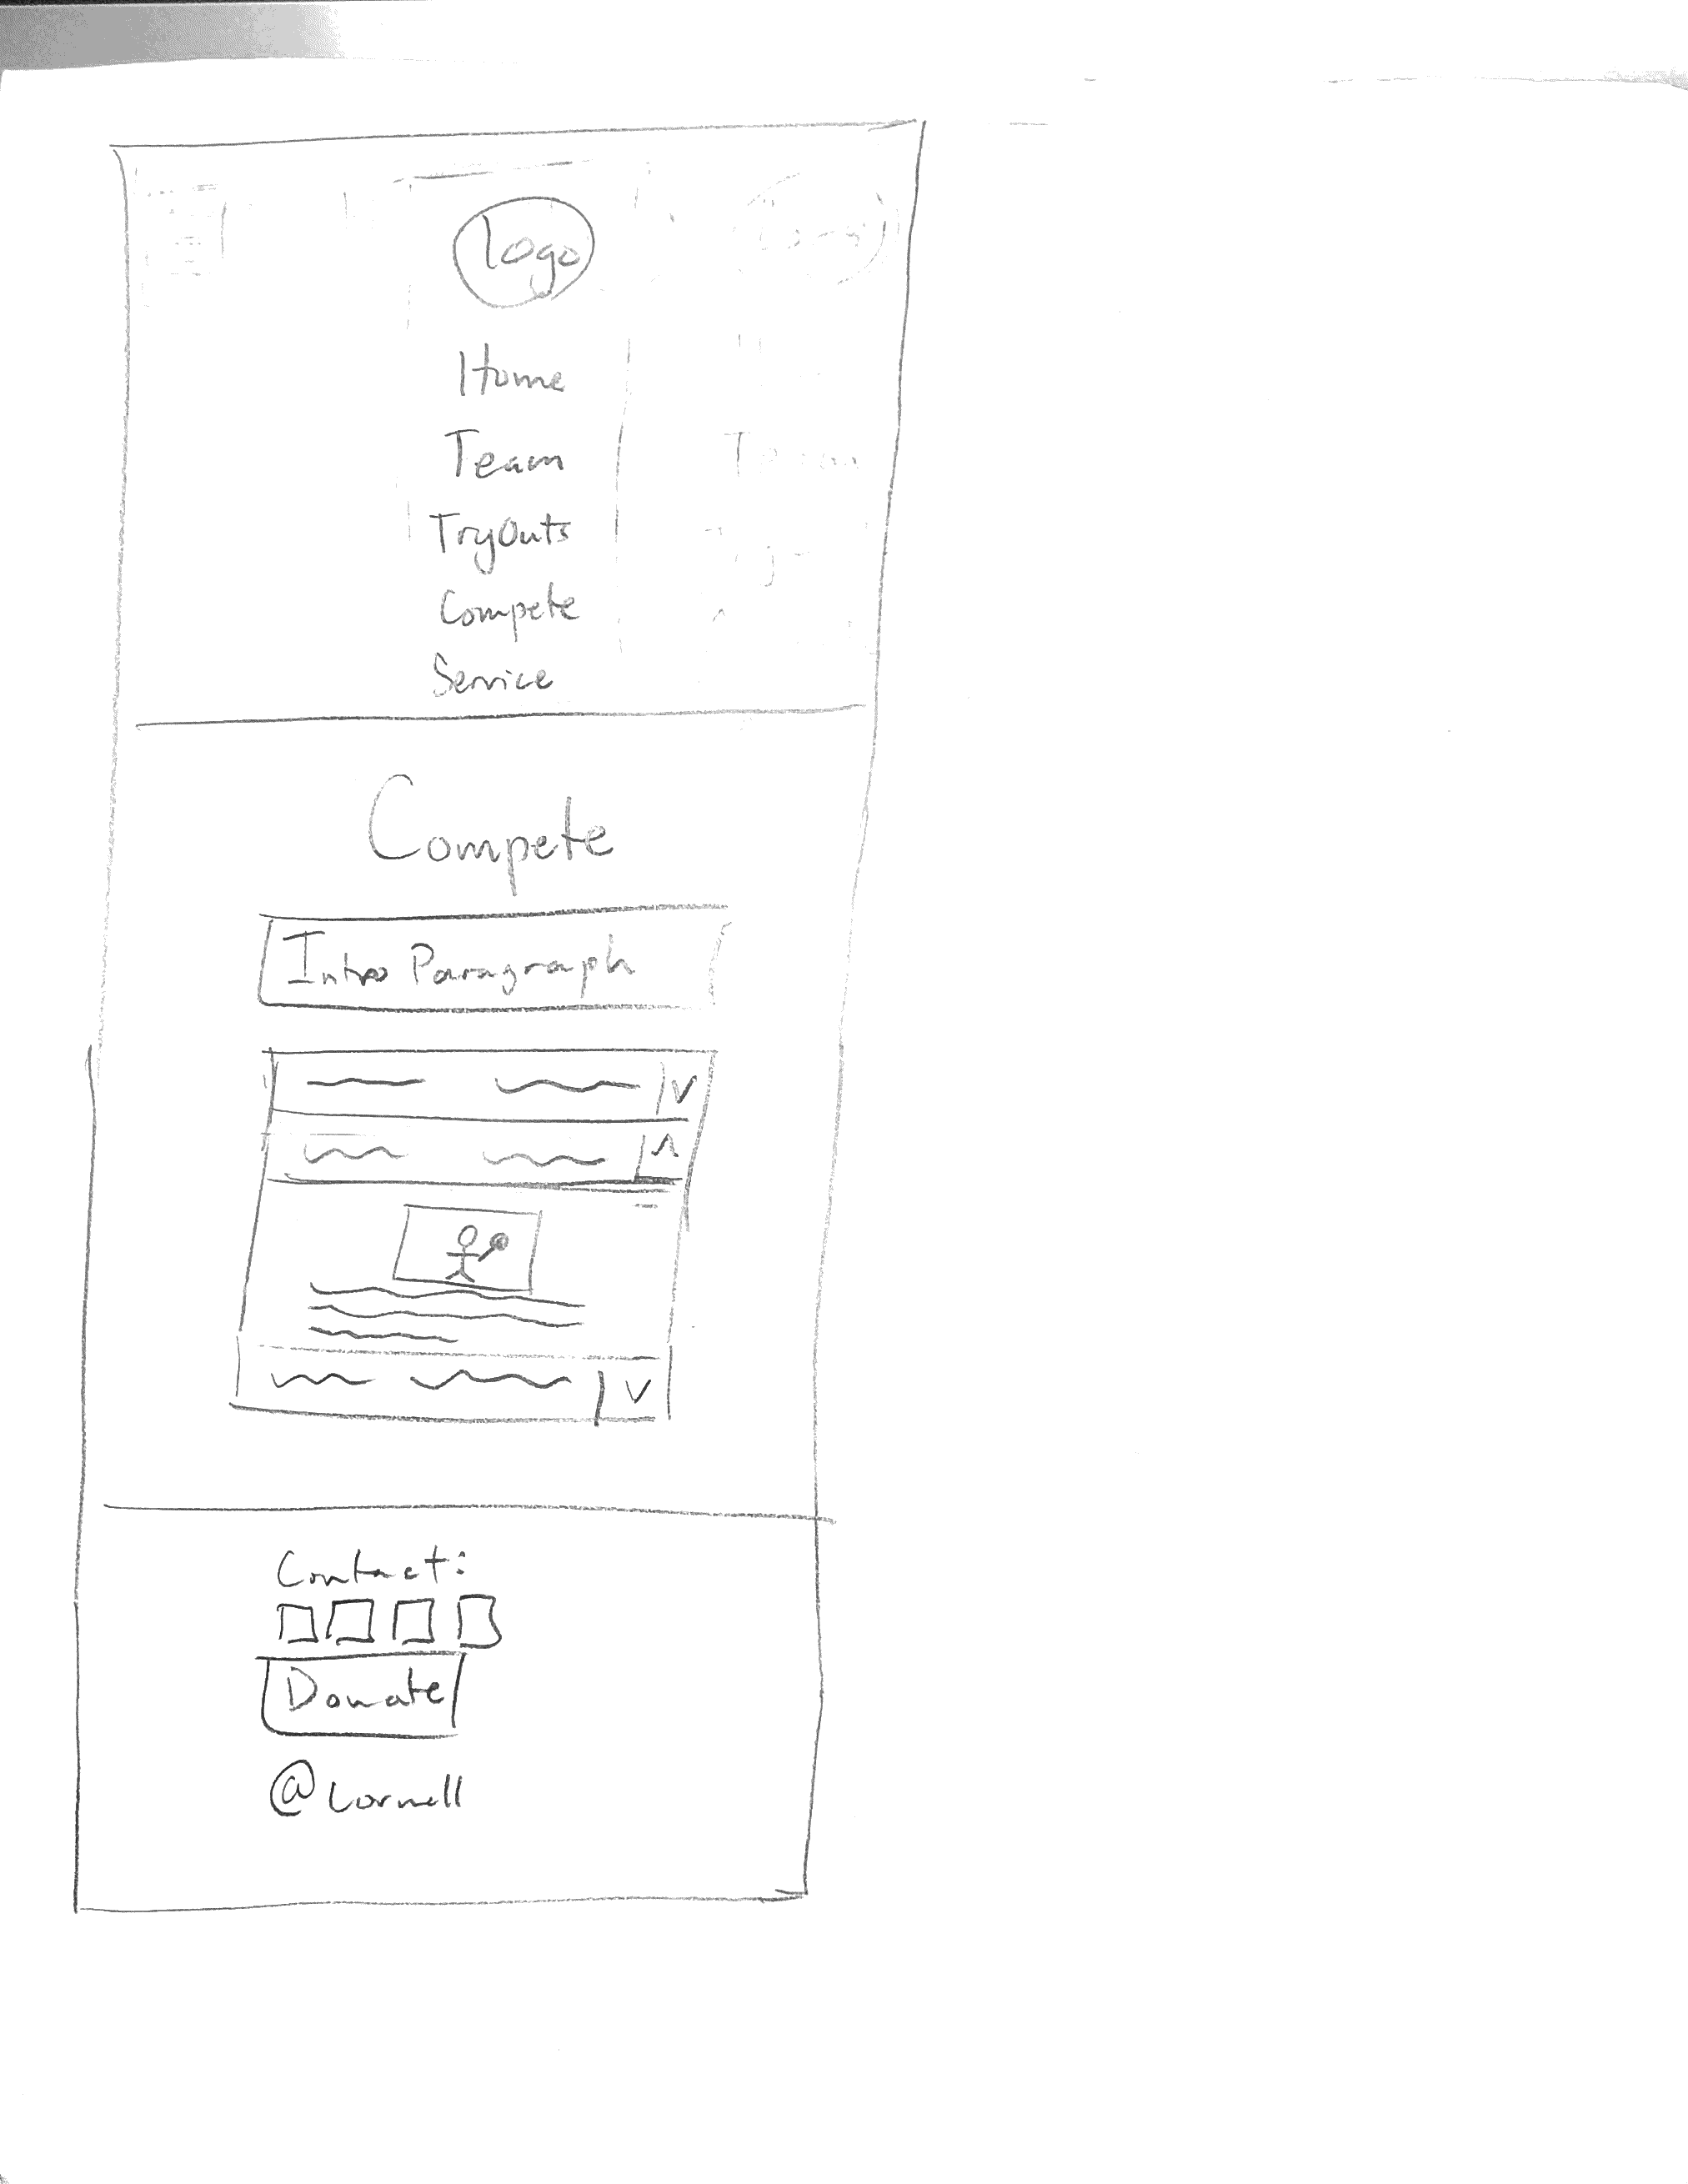 logo
Home
Team
TryOuts
Compete
Service
Compete
Intro Paragraph
Contact:
Donate
@Cornell